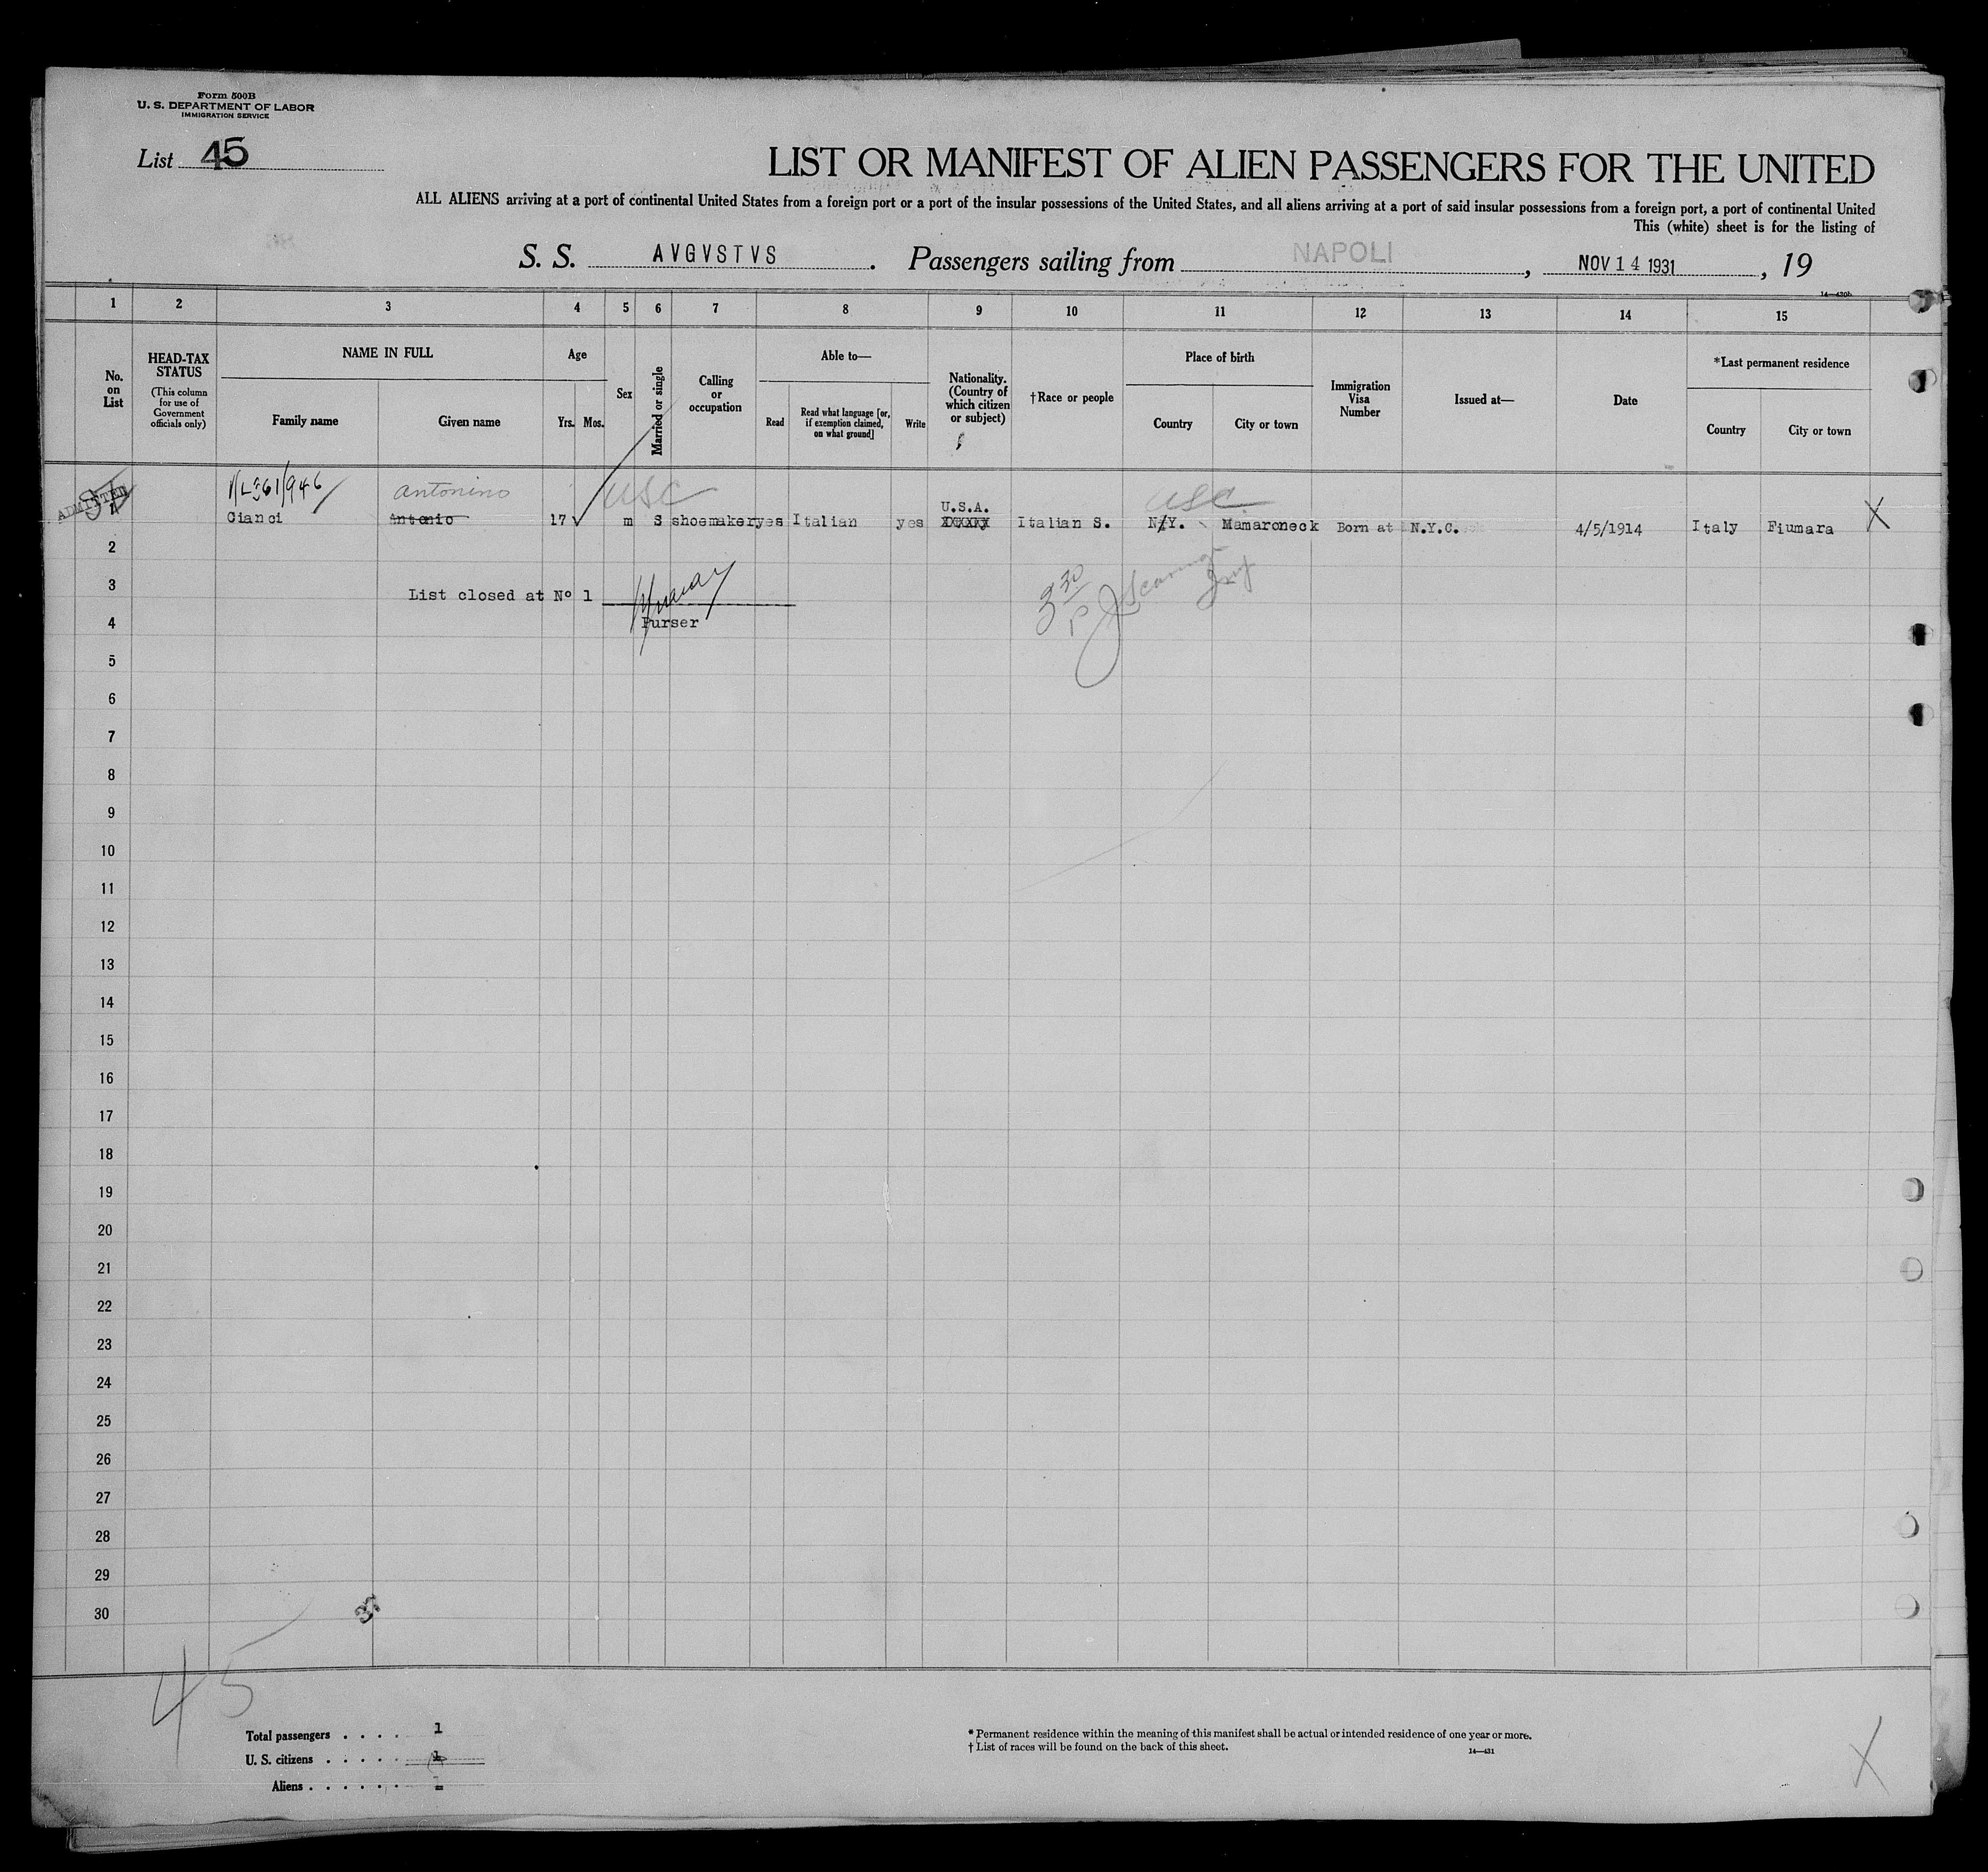 Form 500B
U. S. DEPARTMENT OF LABOR
IMMIGRATION SERVICE
List 45
LIST OR MANIFEST OF ALIEN PASSENGERS FOR THE UNITED
ALL ALIENS arriving at a port of continental United States from a foreign port or a port of the insular possessions of the United States, and all aliens arriving at a port of said insular possessions from a foreign port, a port of continental United
This (white) sheet is for the listing of
S. S. AVGVSTVS. Passengers sailing from NAPOLI, NOV 14 1931, 19
14—430b
1 2 3 4 5 6 7 8 9 10 11 12 13 14 15
No. on List
HEAD-TAX STATUS
(This column for use of Government officials only)
NAME IN FULL
Family name
Given name
Age
Yrs. Mos.
Sex
Married or single
Calling or occupation
Able to—
Read
Read what language [or, if exemption claimed, on what ground]
Write
Nationality. (Country of which citizen or subject)
†Race or people
Place of birth
Country
City or town
Immigration Visa Number
Issued at—
Date
*Last permanent residence
Country
City or town
ADMITTED
Antonino
USC
U.S.A.
USC
1 Cianci Antonio 17 m S shoemaker yes Italian yes XXXXX Italian S. N.Y. Mamaroneck Born at N.Y.C. 4/5/1914 Italy Fiumara X
2
3
List closed at Nº 1
Purser
3 30 P
4
5
6
7
8
9
10
11
12
13
14
15
16
17
18
19
20
21
22
23
24
25
26
27
28
29
30
37
45
Total passengers . . . . 1
U. S. citizens . . . . . 1
Aliens . . . . . . -
* Permanent residence within the meaning of this manifest shall be actual or intended residence of one year or more.
† List of races will be found on the back of this sheet.
14—431
X